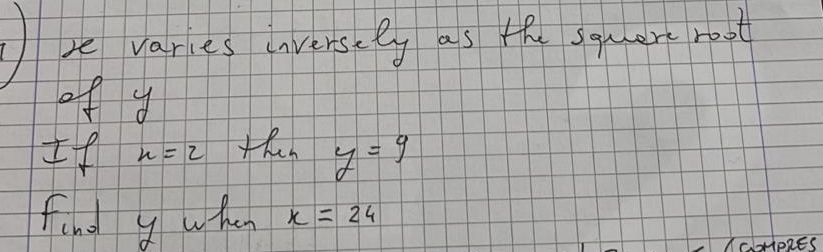 x varies inversely as the square root
of y
If x = 2 then y = 9
Find y when x = 24